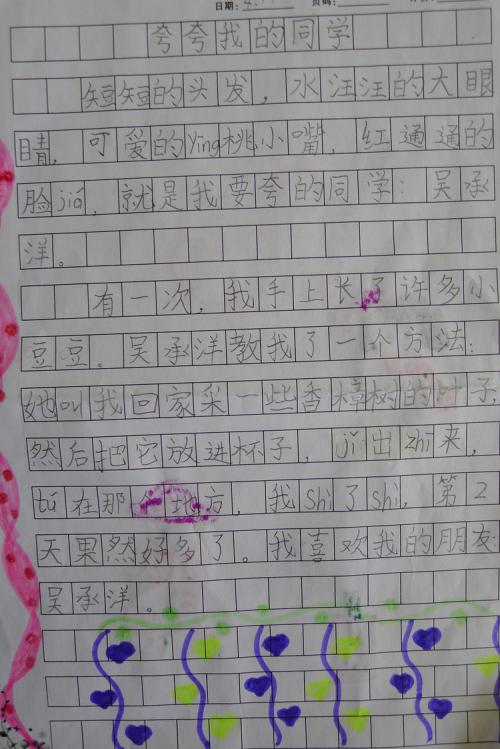 日期: 4.11 页码:
夸夸我的同学
短短的头发，水汪汪的大眼
睛，可爱的ying桃小嘴，红通通的
脸jiá，就是我要夸的同学：吴承
洋。
有一次，我手上长了许多小
豆豆。吴承洋教我了一个方法：
她叫我回家采一些香樟树的叶子，
然后把它放进杯子，jǐ出zhī来，
tú在那个地方，我shì了shì，第2
天果然好多了。我喜欢我的朋友：
吴承洋。